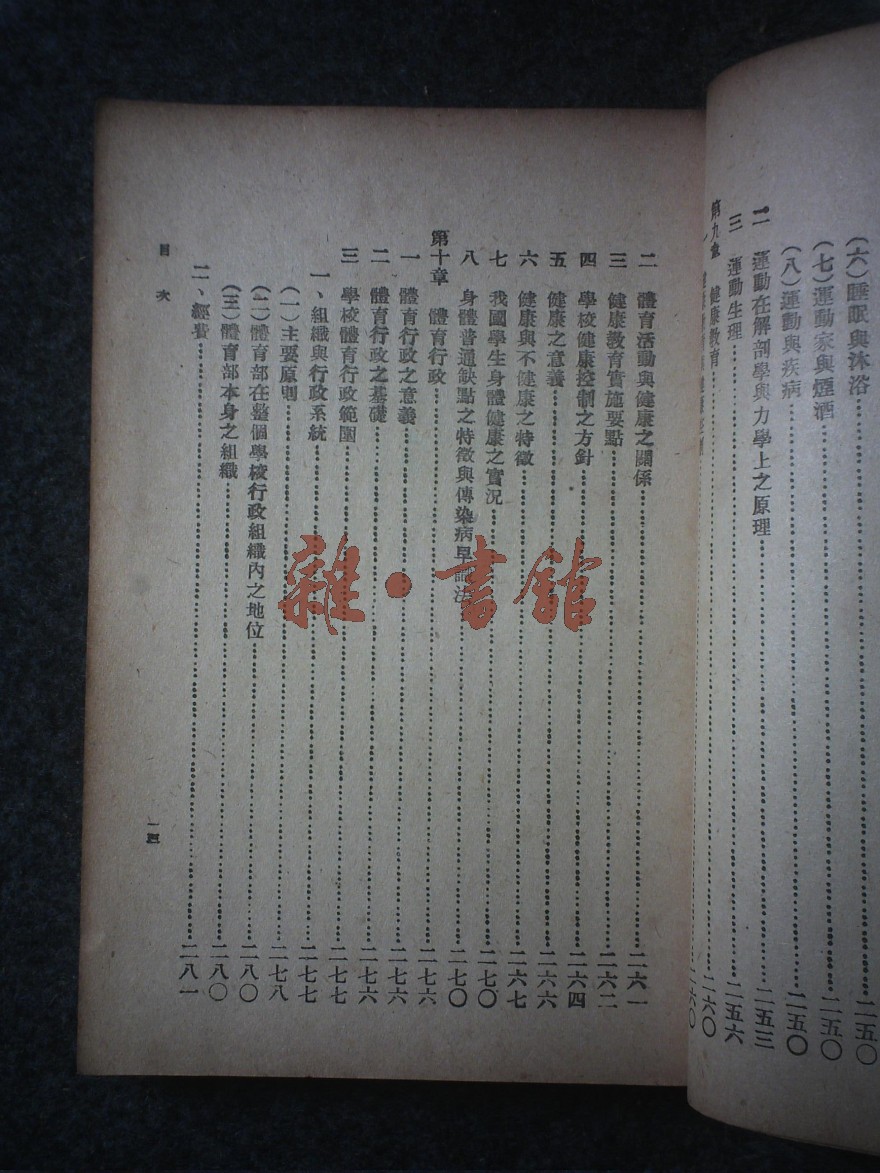 (六)睡眠與沐浴……二五〇
(七)運動家與煙酒……二五〇
(八)運動與疾病……二五〇
二 運動在解剖學與力學上之原理……二五三
三 運動生理……二五六
第九章 健康教育……二六〇
二六〇
二 體育活動與健康之關係……二六一
三 健康教育實施要點……二六二
四 學校健康控制之方針……二六四
五 健康之意義……二六六
六 健康與不健康之特徵……二六七
七 我國學生身體健康之實況……二七〇
八 身體普通缺點之特徵與傳染病早認法……二七〇
第十章 體育行政……二七六
一 體育行政之意義……二七六
二 體育行政之基礎……二七六
三 學校體育行政範圍……二七七
一、組織與行政系統……二七七
(一)主要原則……二七八
(二)體育部在整個學校行政組織內之地位……二八〇
(三)體育部本身之組織……二八〇
二、經費……二八一
目次
一四
雜·書館